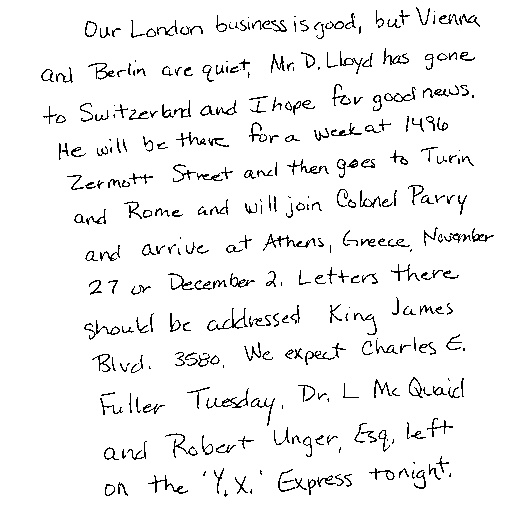 Our London business is good, but Vienna
and Berlin are quiet. Mr. D. Lloyd has gone
to Switzerland and I hope for good news.
He will be there for a week at 1496
Zermott Street and then goes to Turin
and Rome and will join Colonel Parry
and arrive at Athens, Greece, November
27 or December 2. Letters there
should be addressed King James
Blvd. 3580. We expect Charles E.
Fuller Tuesday. Dr. L McQuaid
and Robert Unger, Esq. left
on the 'Y.X.' Express tonight.